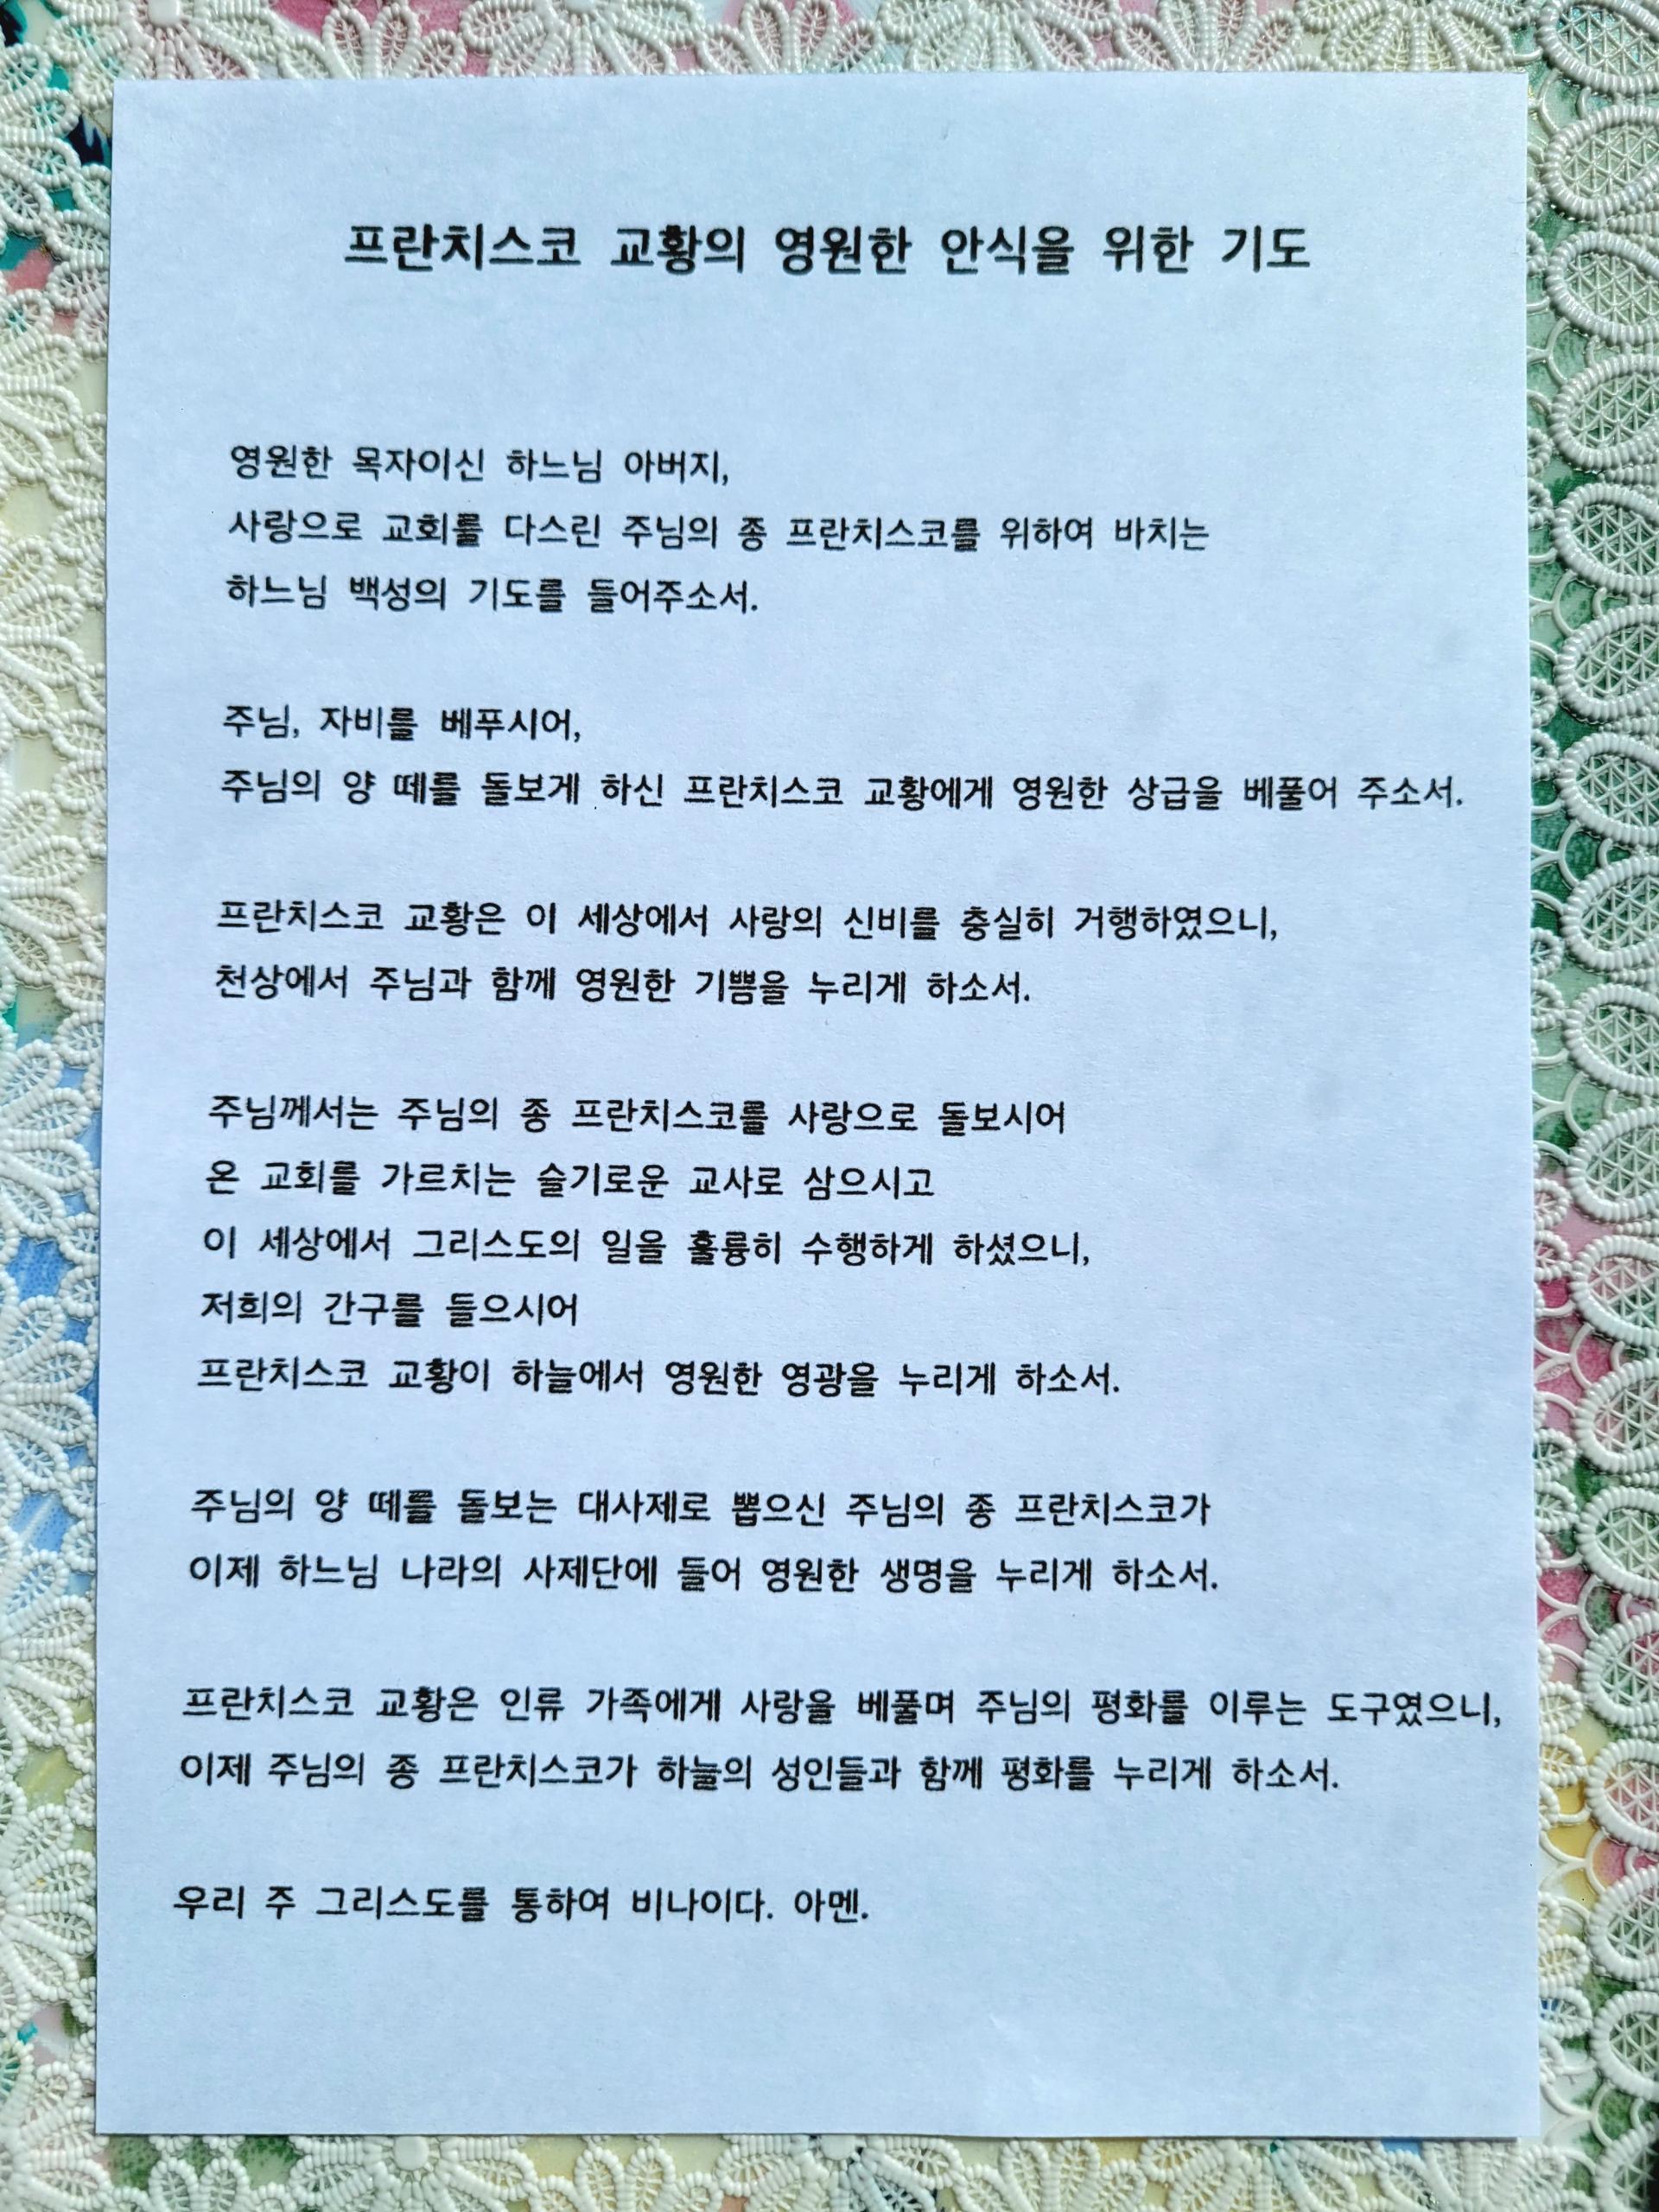 프란치스코 교황의 영원한 안식을 위한 기도
영원한 목자이신 하느님 아버지,
사랑으로 교회를 다스린 주님의 종 프란치스코를 위하여 바치는
하느님 백성의 기도를 들어주소서.
주님, 자비를 베푸시어,
주님의 양 떼를 돌보게 하신 프란치스코 교황에게 영원한 상급을 베풀어 주소서.
프란치스코 교황은 이 세상에서 사랑의 신비를 충실히 거행하였으니,
천상에서 주님과 함께 영원한 기쁨을 누리게 하소서.
주님께서는 주님의 종 프란치스코를 사랑으로 돌보시어
온 교회를 가르치는 슬기로운 교사로 삼으시고
이 세상에서 그리스도의 일을 훌륭히 수행하게 하셨으니,
저희의 간구를 들으시어
프란치스코 교황이 하늘에서 영원한 영광을 누리게 하소서.
주님의 양 떼를 돌보는 대사제로 뽑으신 주님의 종 프란치스코가
이제 하느님 나라의 사제단에 들어 영원한 생명을 누리게 하소서.
프란치스코 교황은 인류 가족에게 사랑을 베풀며 주님의 평화를 이루는 도구였으니,
이제 주님의 종 프란치스코가 하늘의 성인들과 함께 평화를 누리게 하소서.
우리 주 그리스도를 통하여 비나이다. 아멘.